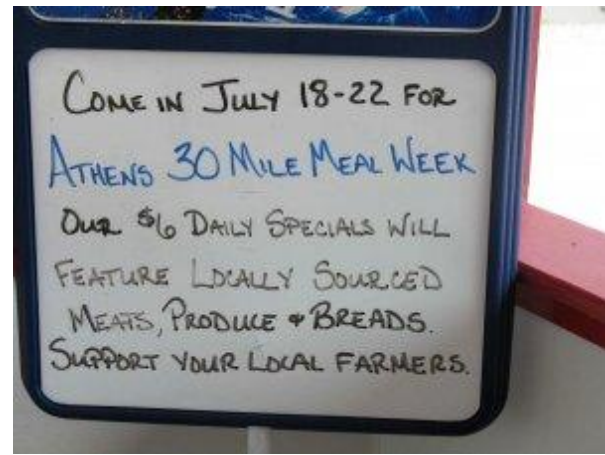 COME IN JULY 18-22 FOR
ATHENS 30 MILE MEAL WEEK
OUR $6 DAILY SPECIALS WILL
FEATURE LOCALLY SOURCED
MEATS, PRODUCE & BREADS.
SUPPORT YOUR LOCAL FARMERS.